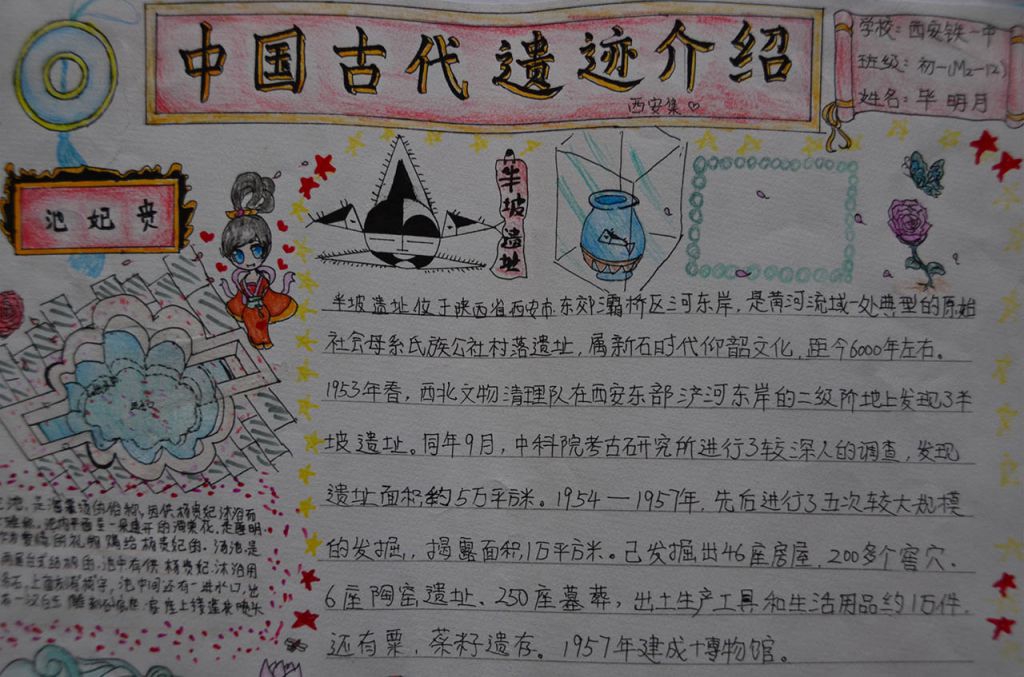 中国古代遗迹介绍
西安集♡
学校：西安铁一中
班级：初一(M2-12)
姓名：毕明月
池妃贵
半坡遗址
半坡遗址位于陕西省西安市东郊灞桥区浐河东岸，是黄河流域一处典型的原始
社会母系氏族公社村落遗址，属新石时代仰韶文化，距今6000年左右。
1953年春，西北文物清理队在西安东部浐河东岸的二级阶地上发现了半
坡遗址。同年9月，中科院考古研究所进行了较深入的调查，发现
遗址面积约5万平方米。1954—1957年，先后进行了五次较大规模
的发掘，揭露面积1万平方米。已发掘出46座房屋、200多个窖穴、
6座陶窑遗址、250座墓葬，出土生产工具和生活用品约1万件，
还有粟、菜籽遗存。1957年建成博物馆。
池，是海棠汤的俗称，因供杨贵妃沐浴而
池内平面呈一朵盛开的海棠花，是唐明
的礼物赐给杨贵妃的。汤池是
两层台式结构的，池中有供杨贵妃沐浴用
池中间还有一进水口，出